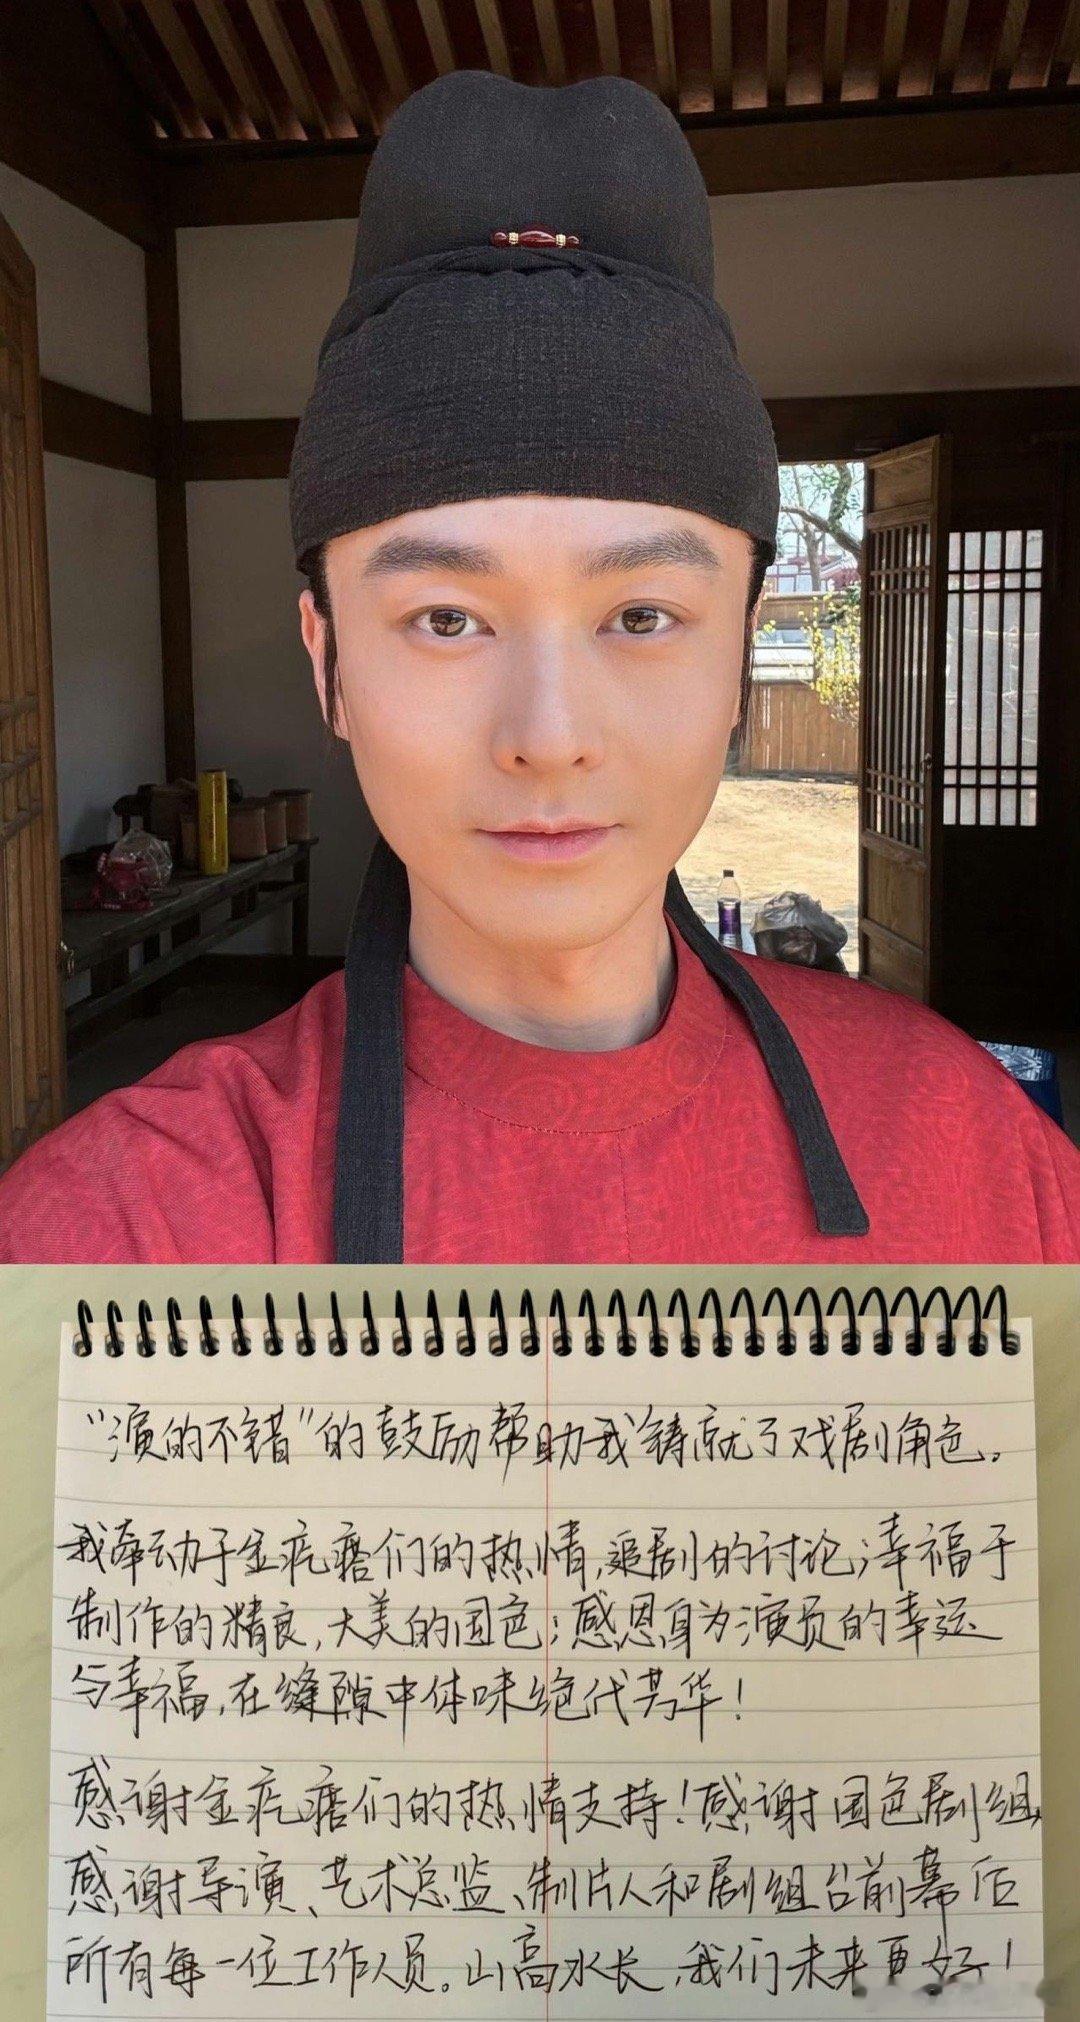 “演的不错”的鼓励帮助我铸就了戏剧角色。
我牵动于金疙瘩们的热情，追剧的讨论；幸福于
制作的精良，大美的国色；感恩身为演员的幸运
与幸福，在缝隙中体味绝代芳华！
感谢金疙瘩们的热情支持！感谢国色剧组，
感谢导演、艺术总监、制片人和剧组台前幕后
所有每一位工作人员。山高水长，我们未来更好！